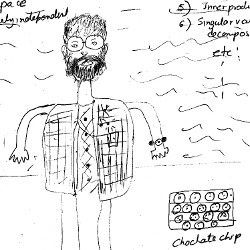 pace
ely independent
5) Inner produ
6) Singular va
decompos
etc!
Choclate chip